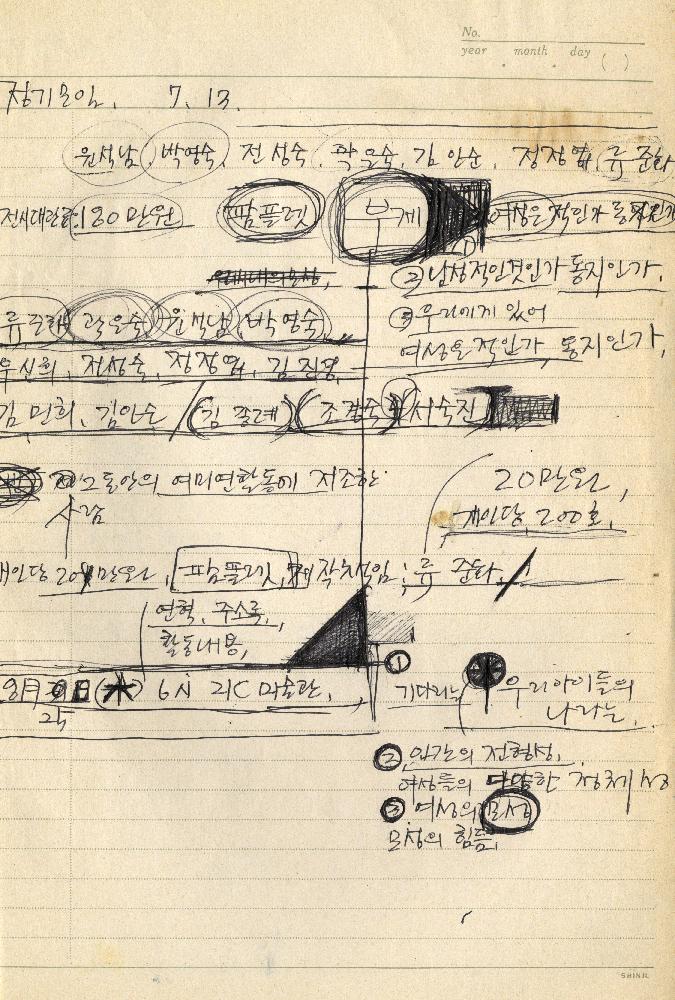 No.
year month day ( )
정기모임. 7. 13.
윤석남, 박영숙, 전성숙, 곽은숙, 김인순, 정정엽, 류준화
전시대관료 180만원 팜플렛 부제 ① 여성은 적인가 동지인가
② 남성적인것인가 동지인가.
③ 우리에게 있어
여성은 적인가, 동지인가,
류준화 곽은숙 윤석남 박영숙
우신희, 전성숙, 정정엽, 김진경,
김민희, 김인순 / (김종례) (조경숙) (서숙진)
그동안의 여미연활동에 저조한
사람
20만원,
개인당, 200호,
개인당 20만원, 팜플렛, 제작책임 : 류준화.
연혁, 주소록,
활동내용,
8月 日(木) 6시 21C 미술관,
24
① 기다리는 우리아이들의
나라는,
② 인간의 전형성,
여성들의 다양한 정체성
③ 여성의 모성
모성의 힘들,
SHINIL